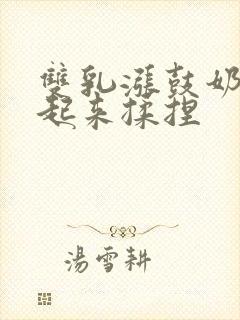 雙乳漲鼓奶
起來揉捏
湯雪耕